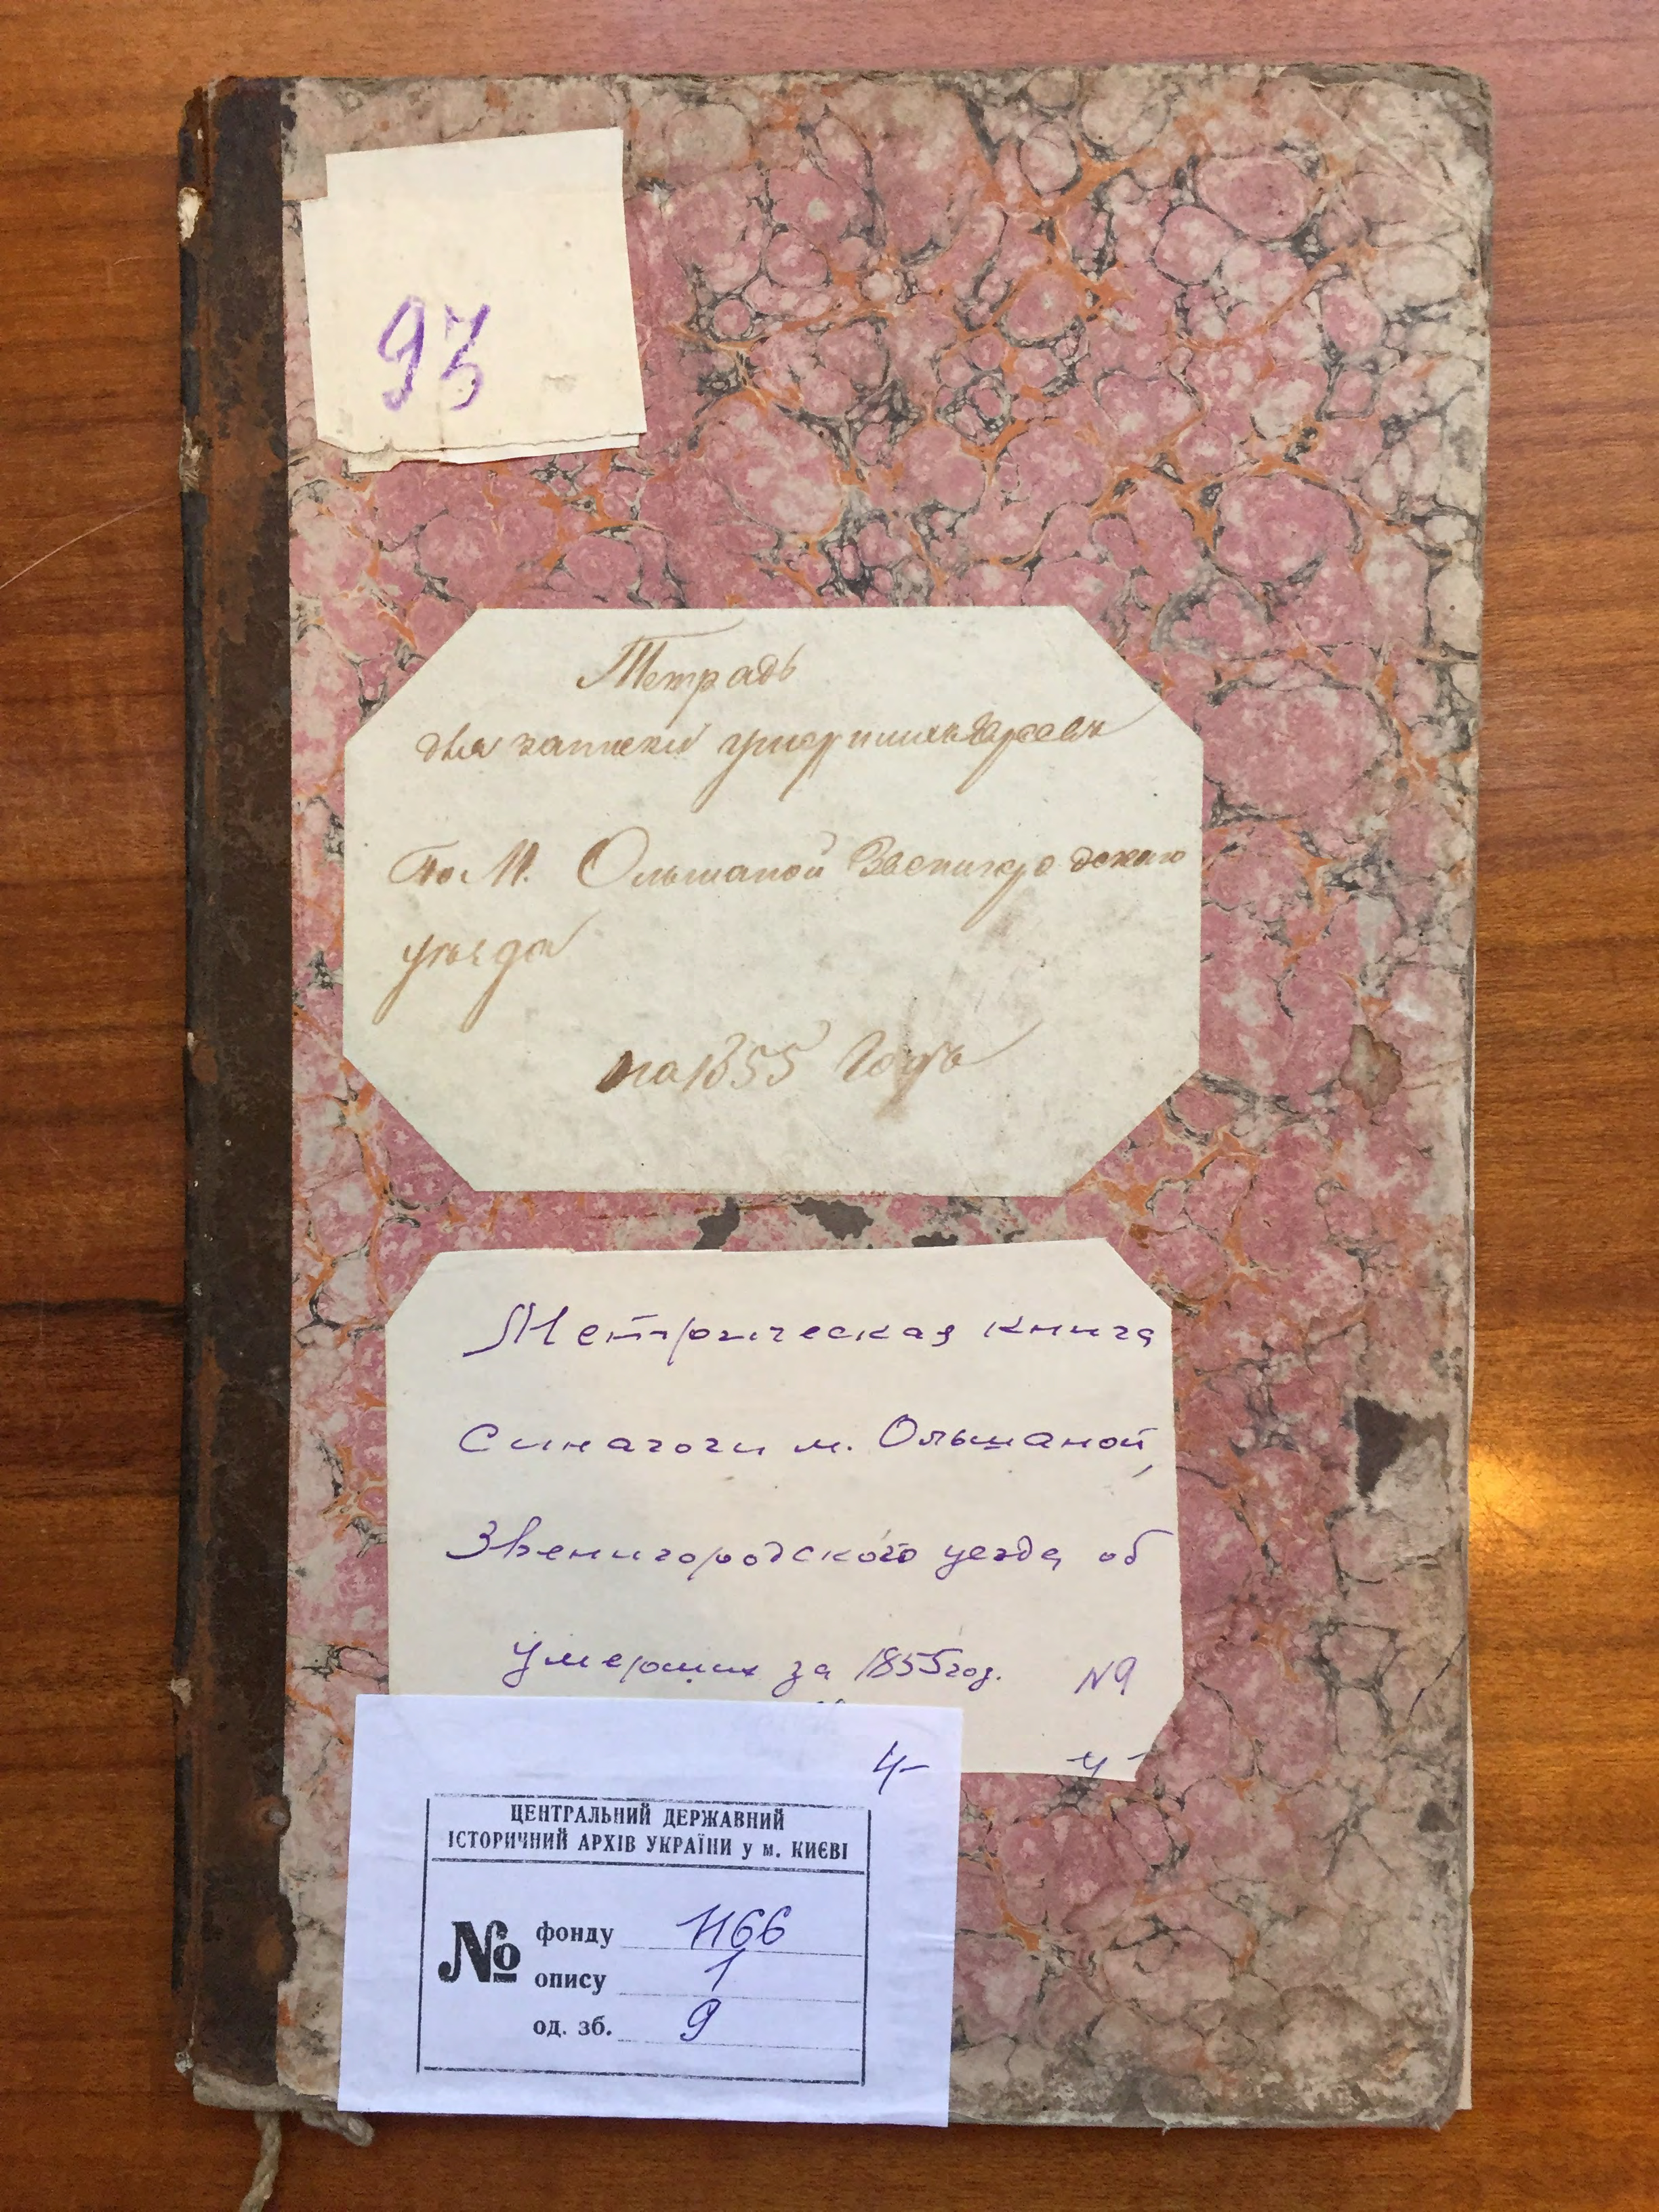 93
Тетрадь
для записки умершихъ Евреевъ
По М. Ольшаной Звенигородскаго
уезда
на 1855 Годъ
Метрическая книга
Синагоги м. Ольшаной,
Звенигородского уезда об
умерших за 1855 год. N9
4-
ЦЕНТРАЛЬНИЙ ДЕРЖАВНИЙ
ІСТОРИЧНИЙ АРХІВ УКРАЇНИ у м. КИЄВІ
№
фонду 1166
опису 1
од. зб. 9